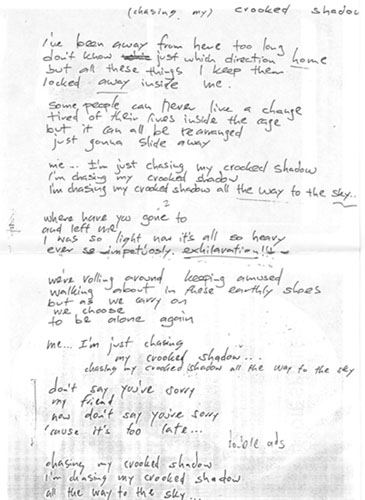 (chasing my) crooked shadow
i've been away from here too long
don't know just which direction home
but all these things I keep them
locked away inside me.
some people can never live a change
tired of their lives inside the cage
but it can all be rearranged
just gonna slide away
me... I'm just chasing my crooked shadow
I'm chasing my crooked shadow
I'm chasing my crooked shadow all the way to the sky...
?
where have you gone to
and left me
I was so light now it's all so heavy
ever so exhilarating!!
we're rolling around keeping amused
walking about in these earthly shoes
but as we carry on
we choose
to be alone again
me... I'm just chasing
my crooked shadow...
chasing my crooked shadow all the way to the sky
don't say you're sorry
my friend
now don't say you're sorry
'cause it's too late...
ads
chasing my crooked shadow
I'm chasing my crooked shadow
all the way to the sky...